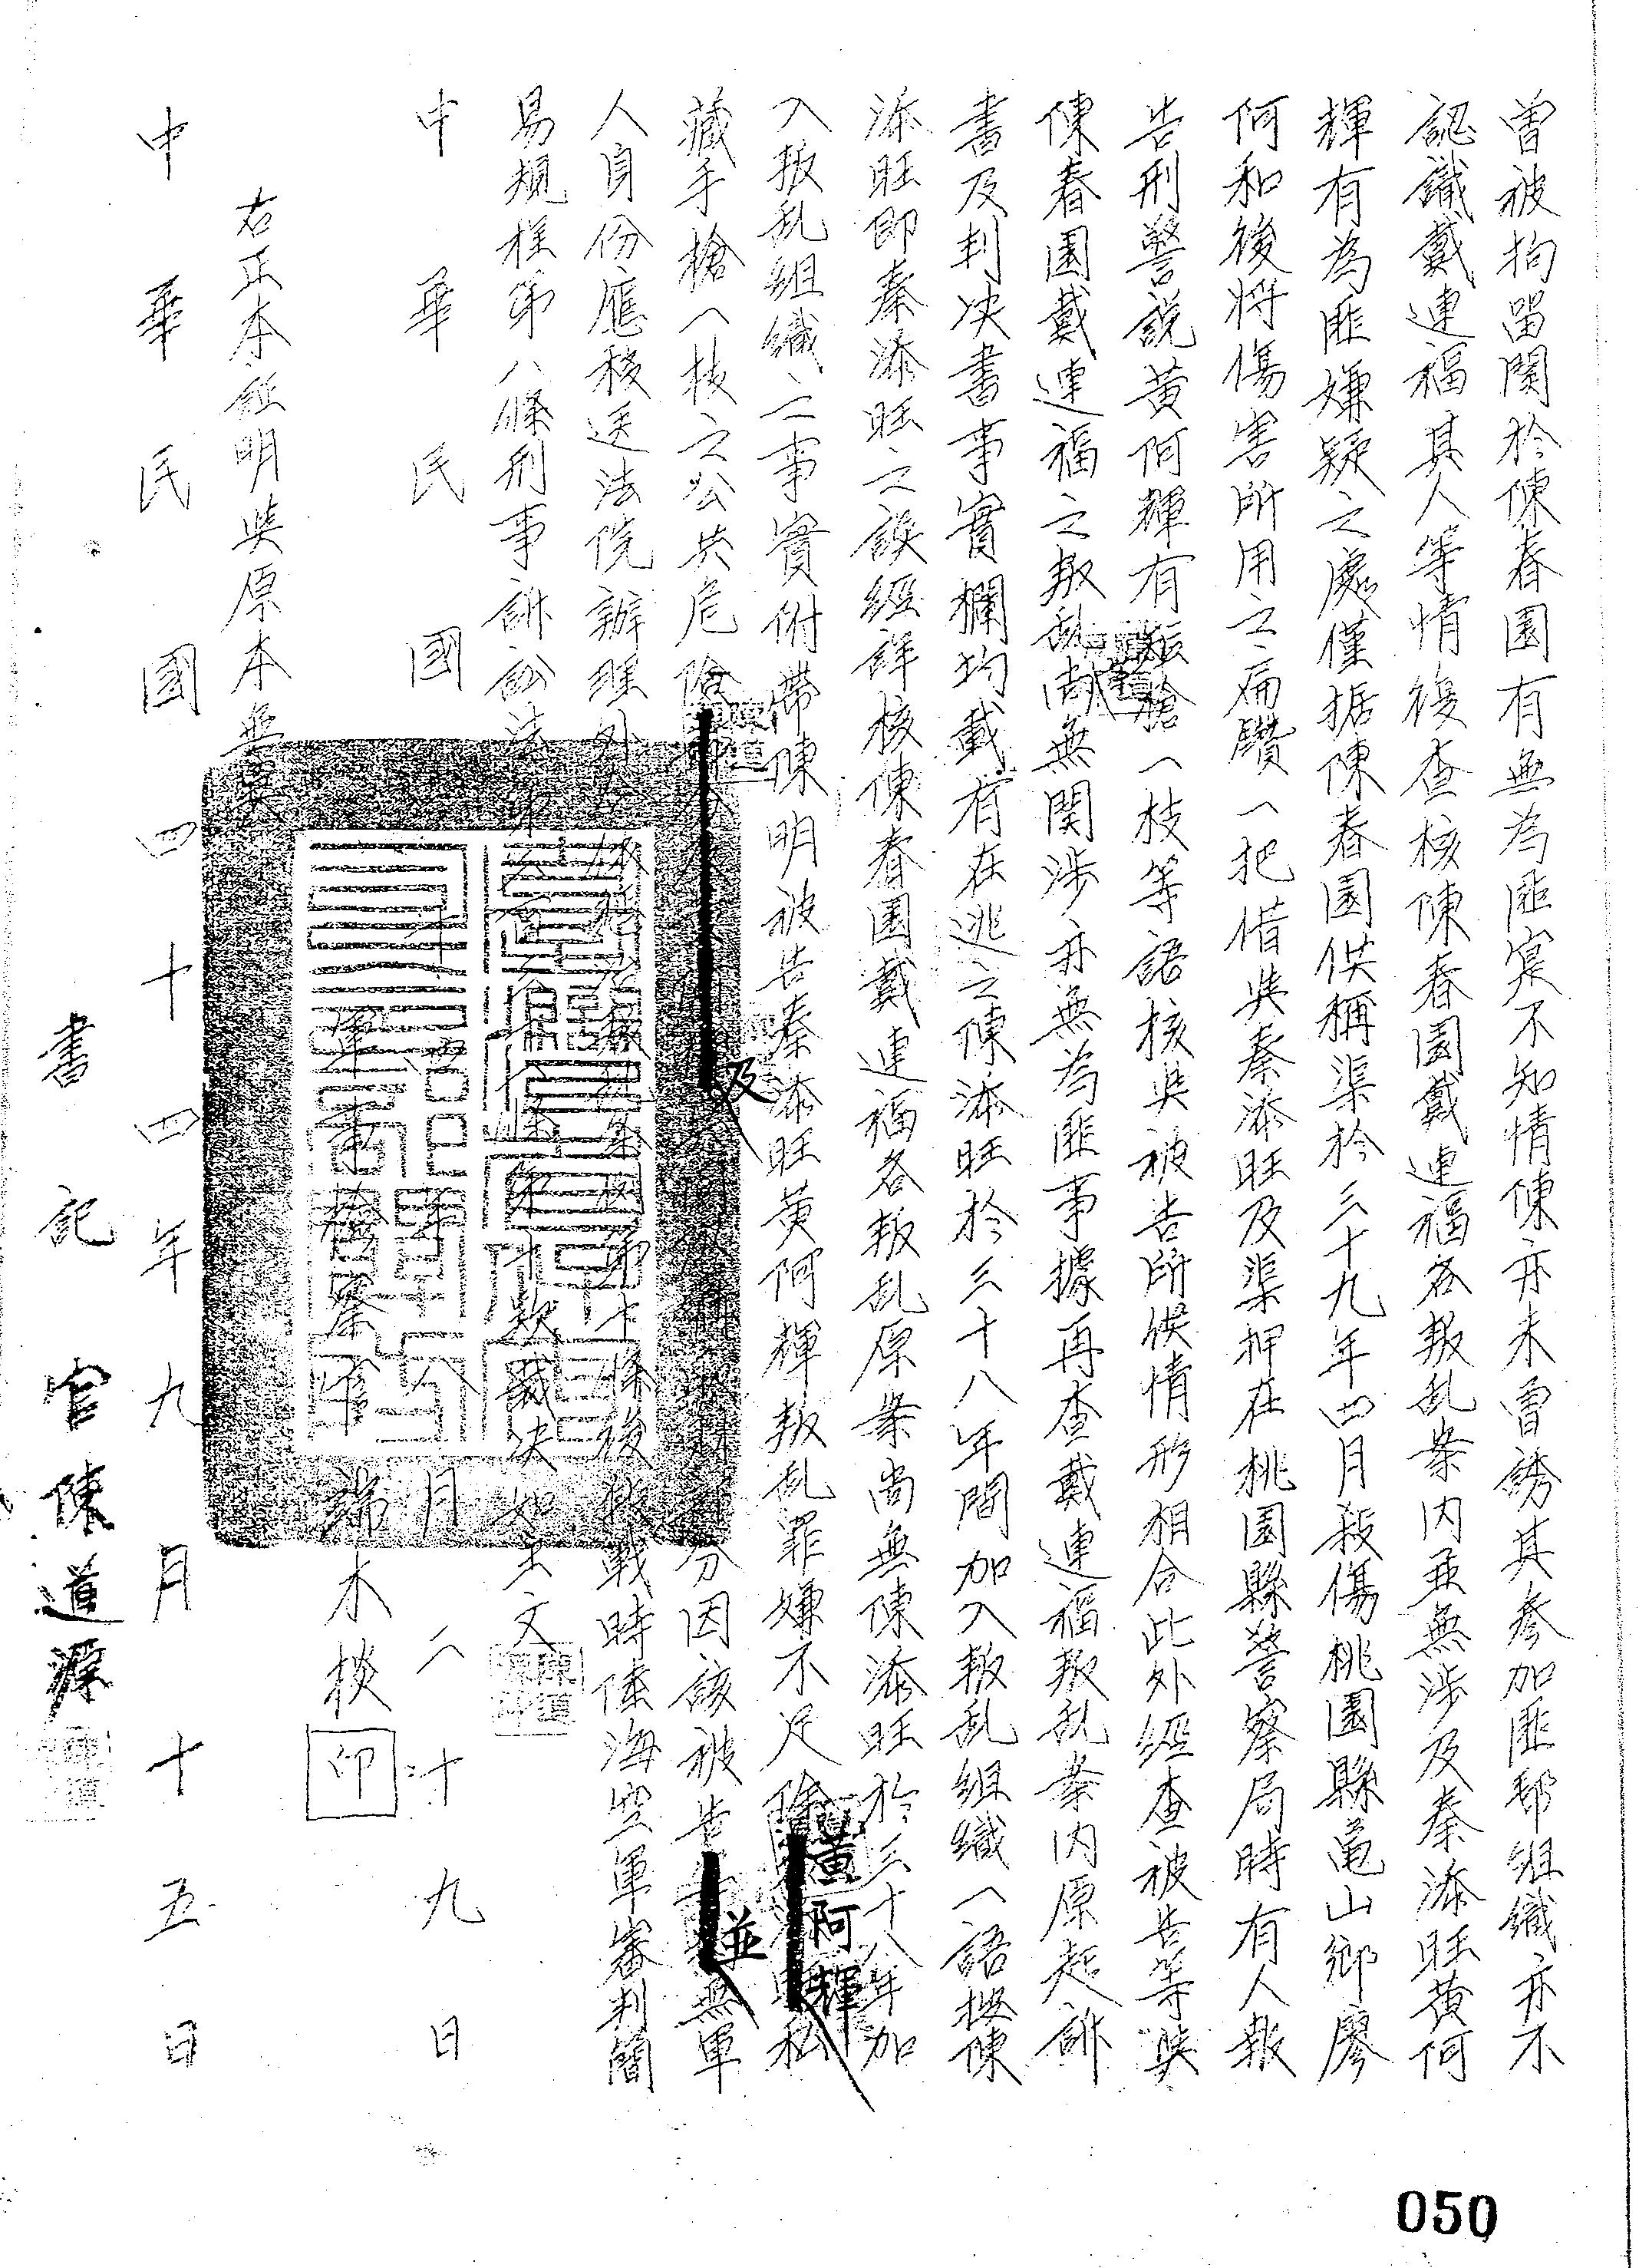 曾被拘畱関於陳春園有無為匪實不知情陳亦未曾誘其參加匪邦組織亦不
認識戴連福其人等情後查核陳春園戴連福各叛乱案内並無涉及秦添旺黄阿
輝有為匪嫌疑之處僅据陳春園供稱渠於三十九年四月殺傷桃園縣龟山鄉廖
阿和後將傷害所用之扁鑽一把借與秦添旺及渠押在桃園縣警察局時有人報
告刑警説黄阿輝有短槍一枝等語核與被告所供情形相合此外經查被告等與
陳春園戴連福之叛乱尚無関涉亦無為匪事據再查戴連福叛乱案内原起訴
書及判决書事實欄均載有在逃之陳添旺於三十八年間加入叛乱組織一語按陳
添旺即秦添旺之誤經詳核陳春園戴連福各叛乱原案尚無陳添旺於三十八年加
入叛乱組織之事實併帶陳明被告秦添旺黄阿輝叛乱罪嫌不足除黃阿輝私
藏手槍一枝之公共危險及分因該被告並無軍
人身份應移送法院辦理外後段戰時陸海空軍審判簡
易規程第八條刑事訴訟法第款裁决如主文
中華民國年月二十九日
軍事檢察官端木棪 印
右正本証明與原本無異
中華民國四十四年九月十五日
書記官陳道源
050